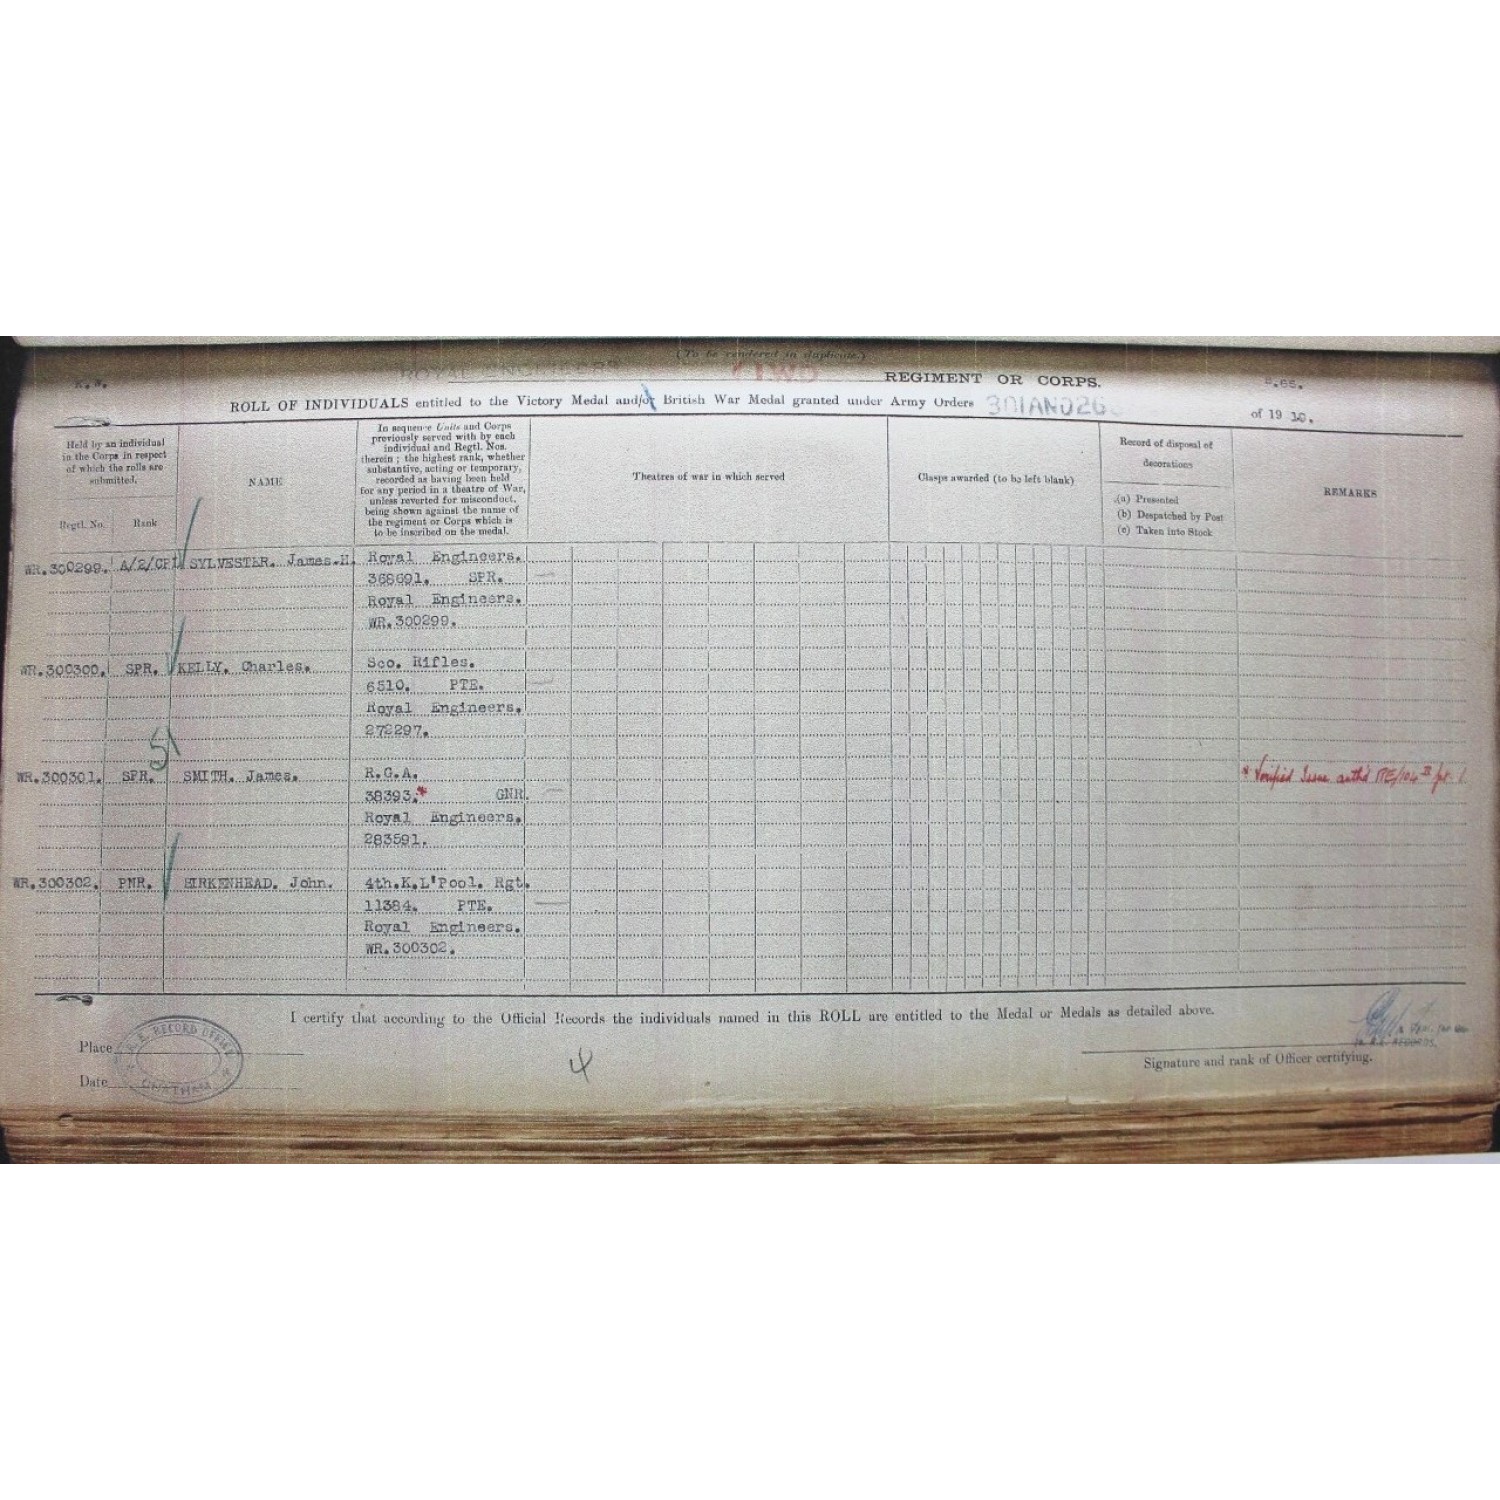 (To be rendered in duplicate.)
K.W. ROYAL ENGINEERS (IWD REGIMENT OR CORPS. .65.
ROLL OF INDIVIDUALS entitled to the Victory Medal and/or British War Medal granted under Army Orders 301AND26 of 19
Held by an individual
in the Corps in respect
of which the rolls are
submitted.
Regtl. No. Rank
NAME
In sequence Units and Corps
previously served with by each
individual and Regtl. Nos.
therein ; the highest rank, whether
substantive, acting or temporary,
recorded as having been held
for any period in a theatre of War,
unless reverted for misconduct,
being shown against the name of
the regiment or Corps which is
to be inscribed on the medal.
Theatres of war in which served
Clasps awarded (to be left blank)
Record of disposal of
decorations
(a) Presented
(b) Despatched by Post
(c) Taken into Stock
REMARKS
WR.300299. A/2/CPL SYLVESTER. James.H. Royal Engineers.
368691. SPR.
Royal Engineers.
WR.300299.
WR.300300. SPR. KELLY. Charles. Sco. Rifles.
6510. PTE.
Royal Engineers.
272297.
5
WR.300301. SPR. SMITH. James. R.G.A. * Verified Issue
38393.* GNR.
Royal Engineers.
283591.
WR.300302. PNR. BIRKENHEAD. John. 4th.K.L'Pool. Rgt.
11384. PTE.
Royal Engineers.
WR.300302.
I certify that according to the Official Records the individuals named in this ROLL are entitled to the Medal or Medals as detailed above.
Place
R.E. RECORD OFFICE
CHATHAM
Date
4
R.E. RECORDS.
Signature and rank of Officer certifying.